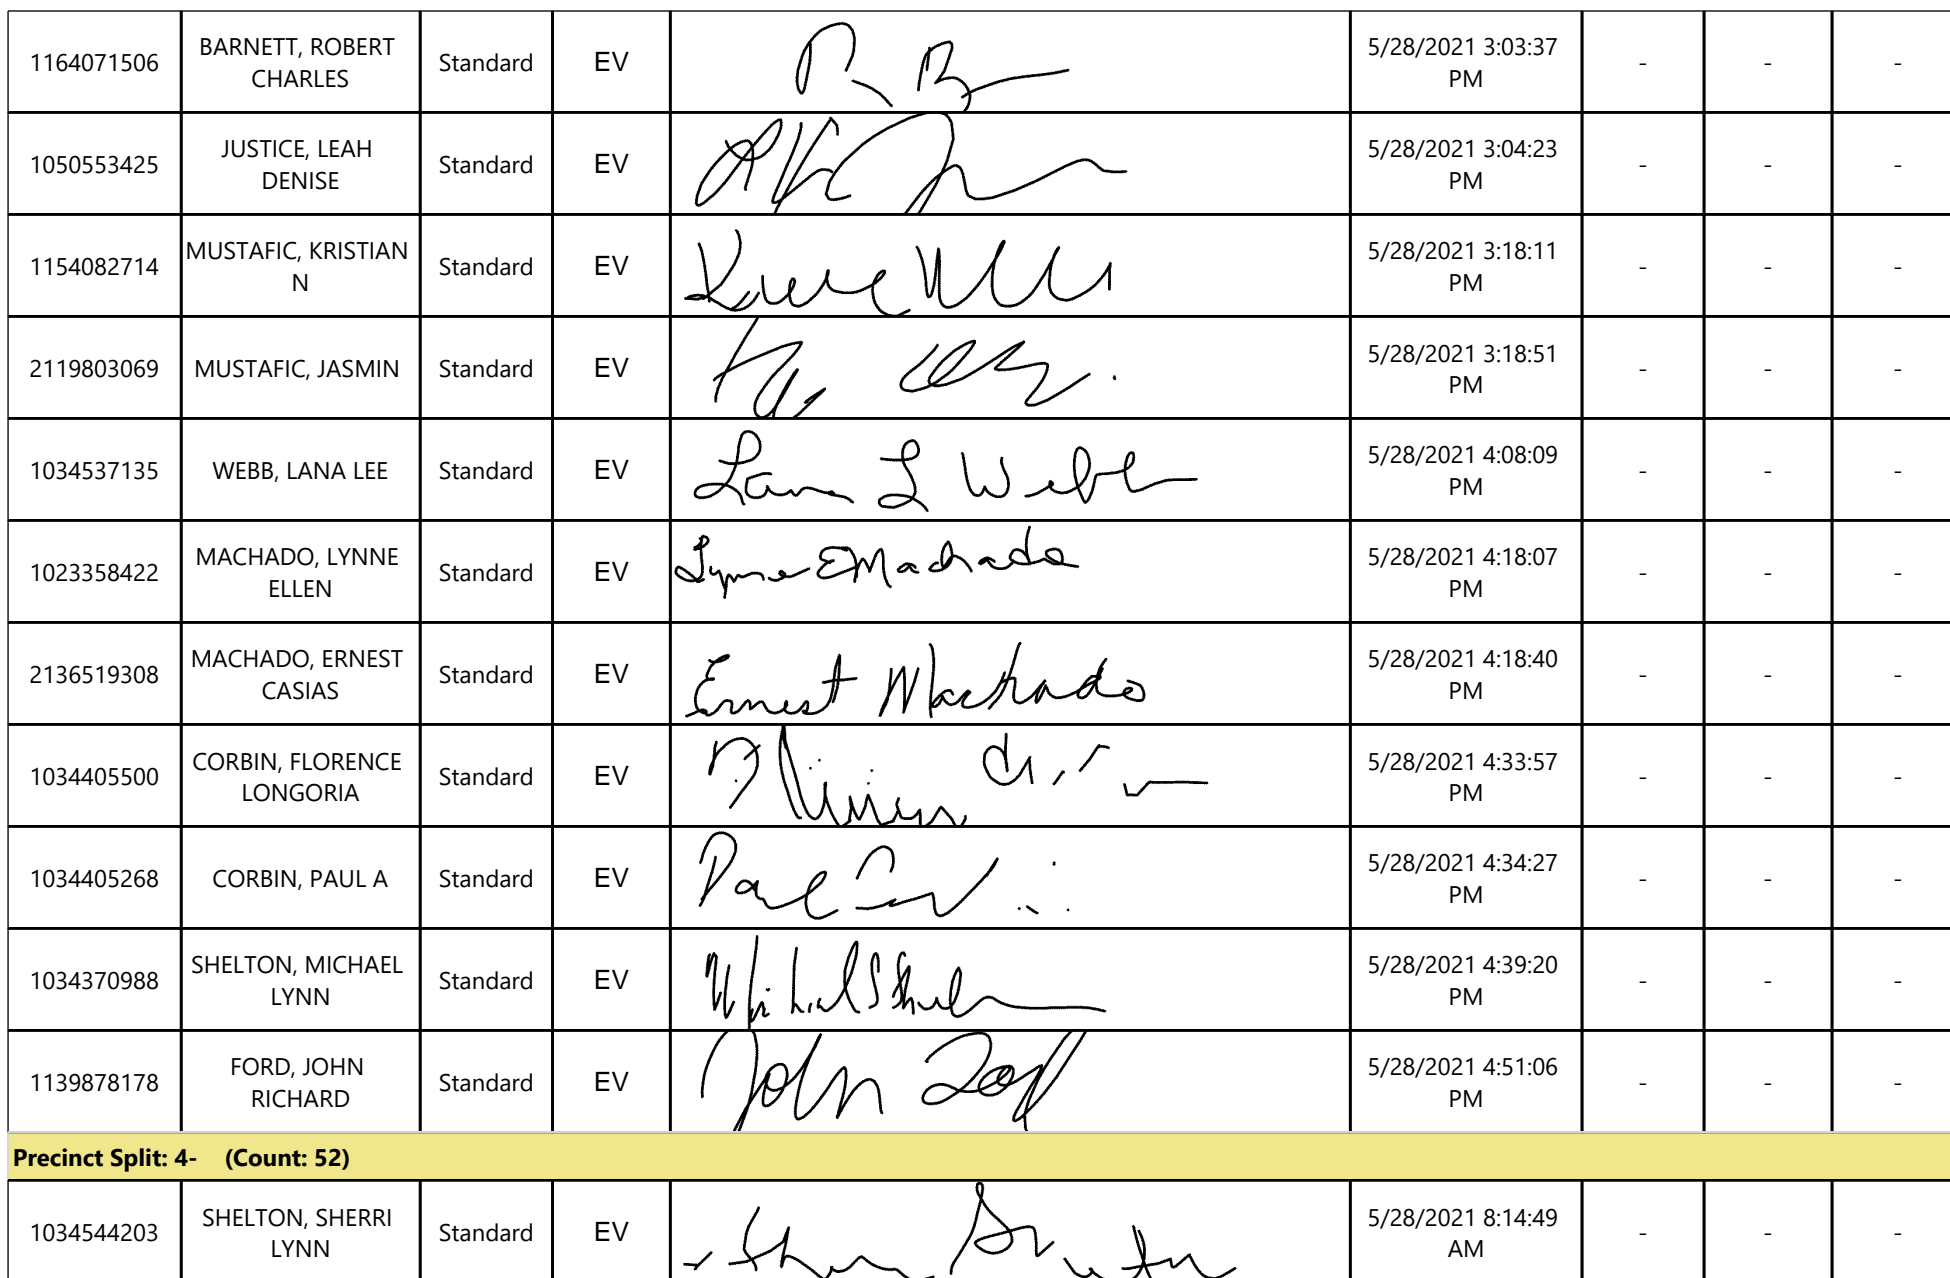 1164071506 BARNETT, ROBERT CHARLES Standard EV 5/28/2021 3:03:37 PM - - -
1050553425 JUSTICE, LEAH DENISE Standard EV 5/28/2021 3:04:23 PM - - -
1154082714 MUSTAFIC, KRISTIAN N Standard EV 5/28/2021 3:18:11 PM - - -
2119803069 MUSTAFIC, JASMIN Standard EV 5/28/2021 3:18:51 PM - - -
1034537135 WEBB, LANA LEE Standard EV Lana L Webb 5/28/2021 4:08:09 PM - - -
1023358422 MACHADO, LYNNE ELLEN Standard EV Lynne E Machado 5/28/2021 4:18:07 PM - - -
2136519308 MACHADO, ERNEST CASIAS Standard EV Ernest Machado 5/28/2021 4:18:40 PM - - -
1034405500 CORBIN, FLORENCE LONGORIA Standard EV 5/28/2021 4:33:57 PM - - -
1034405268 CORBIN, PAUL A Standard EV Paul 5/28/2021 4:34:27 PM - - -
1034370988 SHELTON, MICHAEL LYNN Standard EV 5/28/2021 4:39:20 PM - - -
1139878178 FORD, JOHN RICHARD Standard EV John 5/28/2021 4:51:06 PM - - -
Precinct Split: 4- (Count: 52)
1034544203 SHELTON, SHERRI LYNN Standard EV 5/28/2021 8:14:49 AM - - -